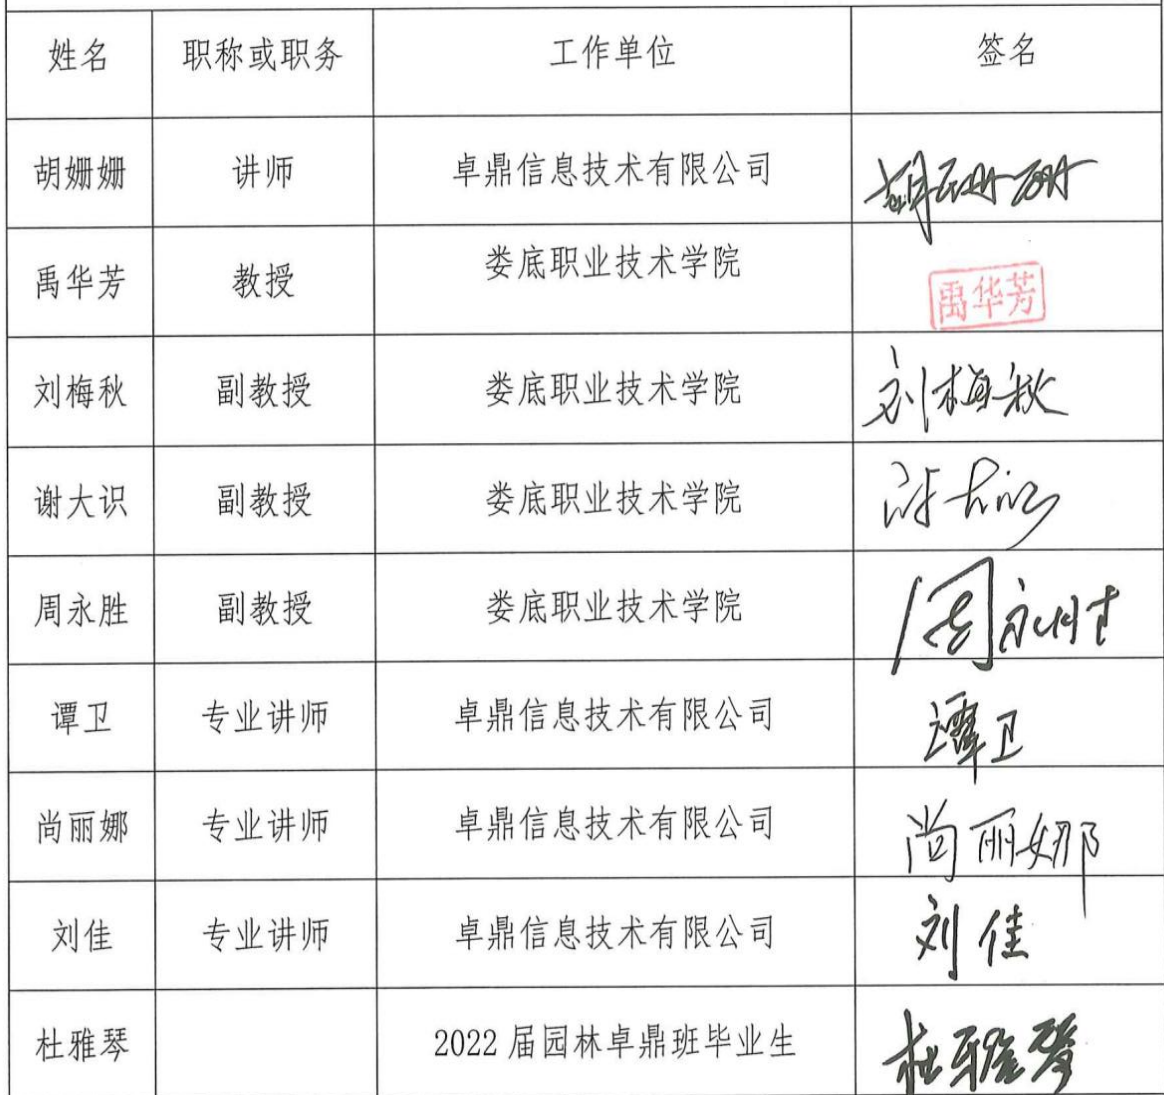 姓名 职称或职务 工作单位 签名
胡姗姗 讲师 卓鼎信息技术有限公司 胡姗姗
禹华芳 教授 娄底职业技术学院 禹华芳
刘梅秋 副教授 娄底职业技术学院 刘梅秋
谢大识 副教授 娄底职业技术学院 谢大识
周永胜 副教授 娄底职业技术学院 周永胜
谭卫 专业讲师 卓鼎信息技术有限公司 谭卫
尚丽娜 专业讲师 卓鼎信息技术有限公司 尚丽娜
刘佳 专业讲师 卓鼎信息技术有限公司 刘佳
杜雅琴 2022 届园林卓鼎班毕业生 杜雅琴